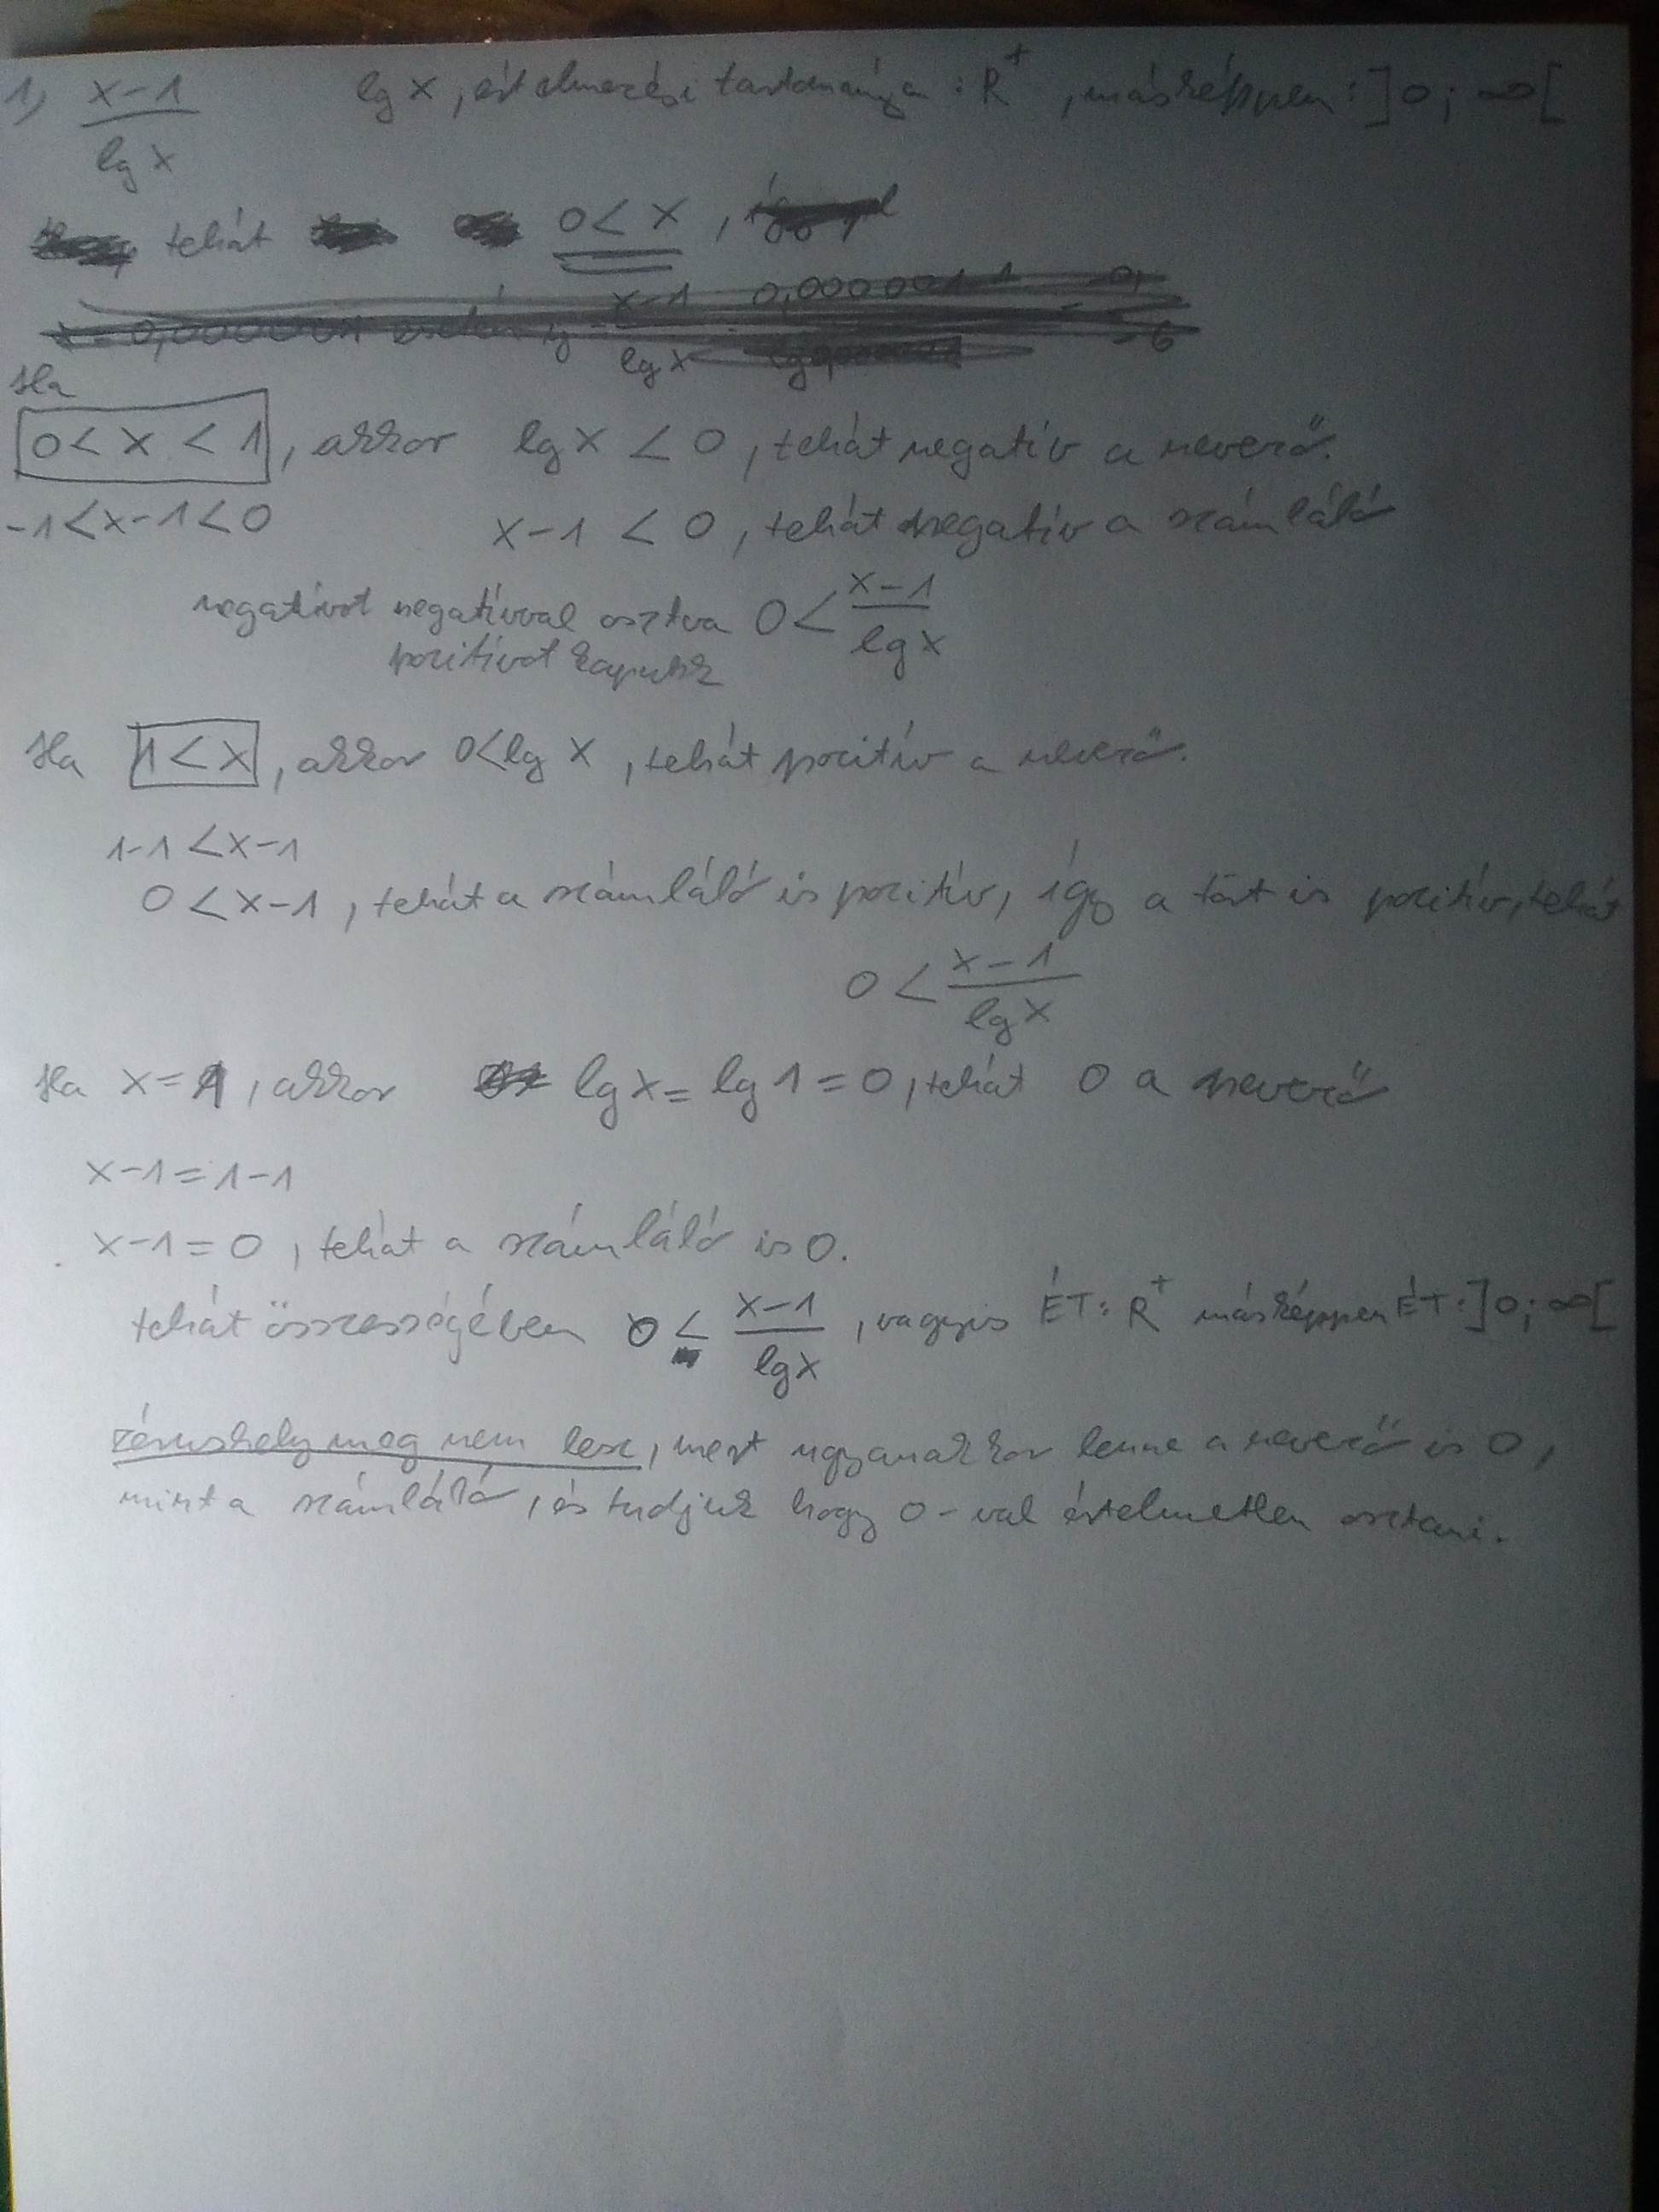 1) x-1 / lg x   lg x, értelmezési tartománya: R⁺, másképpen: ]0; ∞[
tehát 0 < x,
Ha
0 < x < 1, akkor lg x < 0, tehát negatív a nevező.
-1 < x-1 < 0   x-1 < 0, tehát negatív a számláló
negatívot negatívval osztva 0 < x-1 / lg x
pozitívot kapunk
Ha 1 < x, akkor 0 < lg x, tehát pozitív a nevező.
1-1 < x-1
0 < x-1, tehát a számláló is pozitív, így a tört is pozitív, tehát
0 < x-1 / lg x
Ha x = 1, akkor lg x = lg 1 = 0, tehát 0 a nevező
x-1 = 1-1
x-1 = 0, tehát a számláló is 0.
tehát összességében 0 < x-1 / lg x, vagyis ÉT: R⁺ másképpen ÉT: ]0; ∞[
zérushely meg nem lesz, mert ugyanakkor lenne a nevező is 0,
mint a számláló, és tudjuk hogy 0-val értelmetlen osztani.